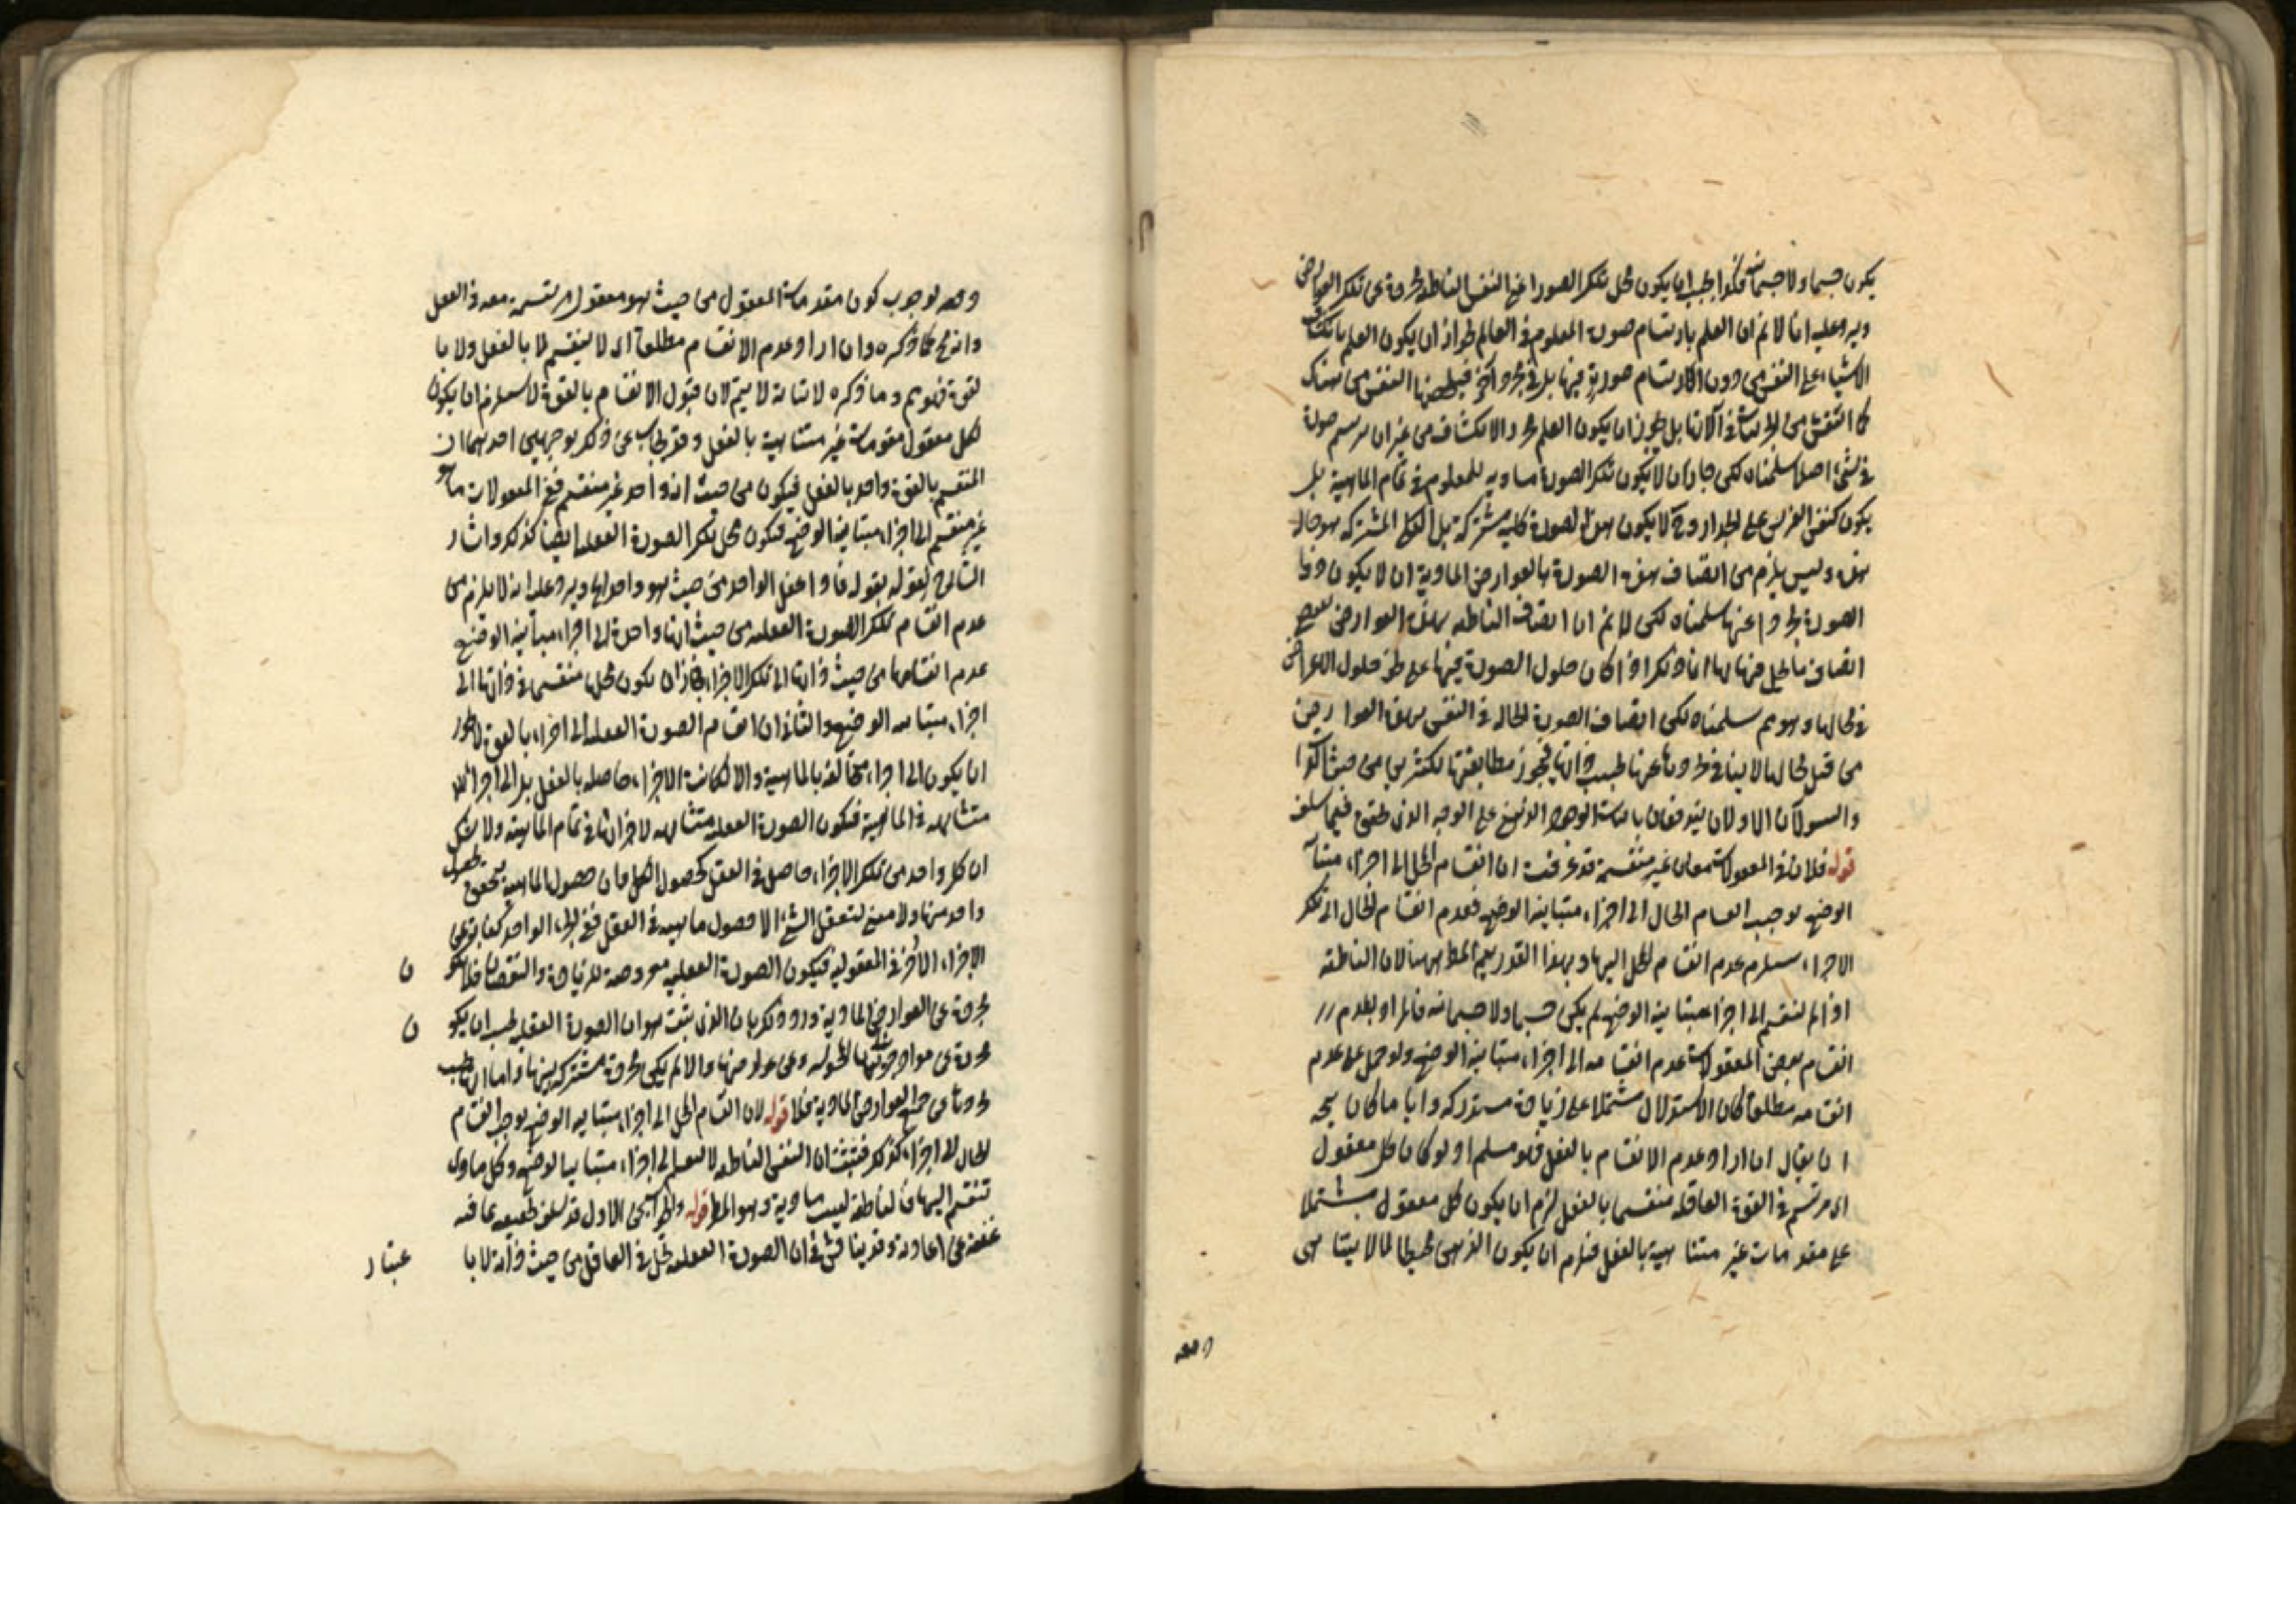 يكون جسما ولا جسمانية فكذا يجب ان يكون محل تلك الصور اعنى النفس الناطقة مجردة عن تلك العوارض
ويرد عليه انا لا نم ان العلم بارتسام صورة المعلوم فى العالم لجواز ان يكون العلم بانكشاف
الاشياء على النفس من دون ارتسام صورة فيها بل فى مجرد آخر فيلحظها النفس من هناك
كما النفس من فى آلاتها بل يجوز ان يكون العلم مجرد الانكشاف من غير ان يرتسم صورة
فى شىء اصلا سلمناه لكن جاز ان لا يكون تلك الصورة مساوية للمعلوم فى تمام الماهية بل
يكون كنقش الفرس على الجدار وح لا يكون هذه الصورة كلية مشتركة بل الكلى المشتركة هو حاله
هذه وليس يلزم من اتصاف هذه الصورة بالعوارض المادية ان لا يكون ذو
الصورة مجردا عنها سلمناه لكن لا نم ان اتصاف الناطقة بهذه العوارض
اتصاف ما يحل فيها بها انما ذلك اذا كان حلول الصورة فيها على طرز حلول الاعراض
فى محالها وهو مم سلمناه لكن اتصاف الصورة الحالة فى النفس بهذه العوارض
من قبل محالها لا ينافى تجردها عنها بحسب ذاتها فيجوز مطابقتها لكثيرين من حيث
والسؤالان الاولان يندفعان باثبات الوجود الذهنى على الوجه الذى حقق فيما سلف
قوله فلان فى المعقولات معان غير منقسمة قد عرفت ان انقسام المحل الى اجزاء متباينة
الوضع يوجب انقسام الحال الى اجزاء متباينة الوضع فعدم انقسام الحال الى تلك
الاجزاء يستلزم عدم انقسام المحل اليها وبهذا القدر يتم المط ههنا لان الناطقة
اذا لم تنقسم الى اجزاء متباينة الوضع لم يكن جسما ولا جسمانية فالمراد بعدم
انقسام بعض المعقولات عدم انقسامه الى اجزاء متباينة الوضع ولو حمل على عدم
انقسامه مطلقا كان الاستدلال مشتملا على زيادة مستدركه وايا ما كان يتجه
ان يقال ان اراد عدم الانقسام بالفعل فهو مسلم اذ لو كان كل معقول
اى مرتسم فى القوة العاقلة منقسما بالفعل لزم ان يكون كل معقول مشتملا
على مقدمات غير متناهية بالفعل فيلزم ان يكون الذهن محيطا لما لا يتناهى
دفعه
دفعه لوجوب كون مقدمات المعقول من حيث هو معقول مرتسمة معه فى العقل
وانه مح كما ذكره وان اراد عدم الانقسام مطلقا اى لا ينقسم لا بالفعل ولا با
لقوة فهو مم وما ذكره لاثباته لا يتم لان قبول الانقسام بالقوة لا يستلزم ان يكون
لكل معقول مقومات غير متناهية بالفعل وقد يجاب عن ذلك بوجهين احدهما ان
المنقسم بالقوة واحد بالفعل فيكون من حيث انه واحد غير منقسم ففى المعقولات ما هو
غير منقسم الى اجزاء متباينة الوضع فيكون محل تلك الصورة العقلية ايضا كذلك واشار
الشارح لقوله بقوله فاذا عقل الواحد من حيث هو واحد الخ ويرد عليه انه لا يلزم من
عدم انقسام تلك الصورة العقلية من حيث انها واحدة الى اجزاء متباينة الوضع
عدم انقسامها من حيث ذاتها الى تلك الاجزاء فجاز ان يكون محلها منقسما فى ذاتها الى
اجزاء متباينة الوضع والثانى ان انقسام الصورة العقلية الى اجزاء بالقوة لا يجوز
ان يكون الى اجزاء مخالفة بالماهية والا لكانت الاجزاء حاصلة بالفعل بل الى اجزاء
متشابهة فى الماهية فيكون الصورة العقلية متشابهة لاجزائها فى تمام الماهية ولا شك
ان كل واحد من تلك الاجزاء حاصل فى العقل كحصول الكل فان حصول الماهية يتحقق بحصول
واحد منها ولا معنى لتعقل الشىء الا حصول ماهيته فى العقل ففى الجزء الواحد كفاية عن
الاجزاء الاخر فى المعقولية فيكون الصورة العقلية معروضة للزيادة والنقصان فلا يكون
مجردة عن العوارض المادية ورد ذلك بان الذى يثبت هو ان الصورة العقلية يجب ان يكون
مجردة عن مواد جزئياتها المحسوسة وعن عوارضها والا لم يكن مجردة مشتركة بينها واما انها يجب
تجردها عن جميع العوارض المادية فلا قوله لان انقسام المحل الى اجزاء متباينة الوضع يوجب انقسام
الحال الى اجزاء كذلك فثبت ان النفس الناطقة لا تنقسم الى اجزاء متباينة الوضع وكل مادى
تنقسم اليها فالناطقة ليست مادية وهو المط قوله والجواب عن الاول قد سلف تحقيقه بما فيه
غنية عن اعادته وقد يناقش فى ان الصورة العقلية تحل فى العاقل من حيث ذاته لا با عتبار